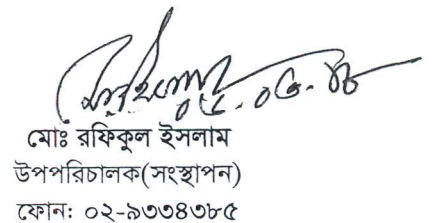 মোঃ রফিকুল ইসলাম
উপপরিচালক(সংস্থাপন)
ফোন: ০২-৯৩৩৪৩৮৫